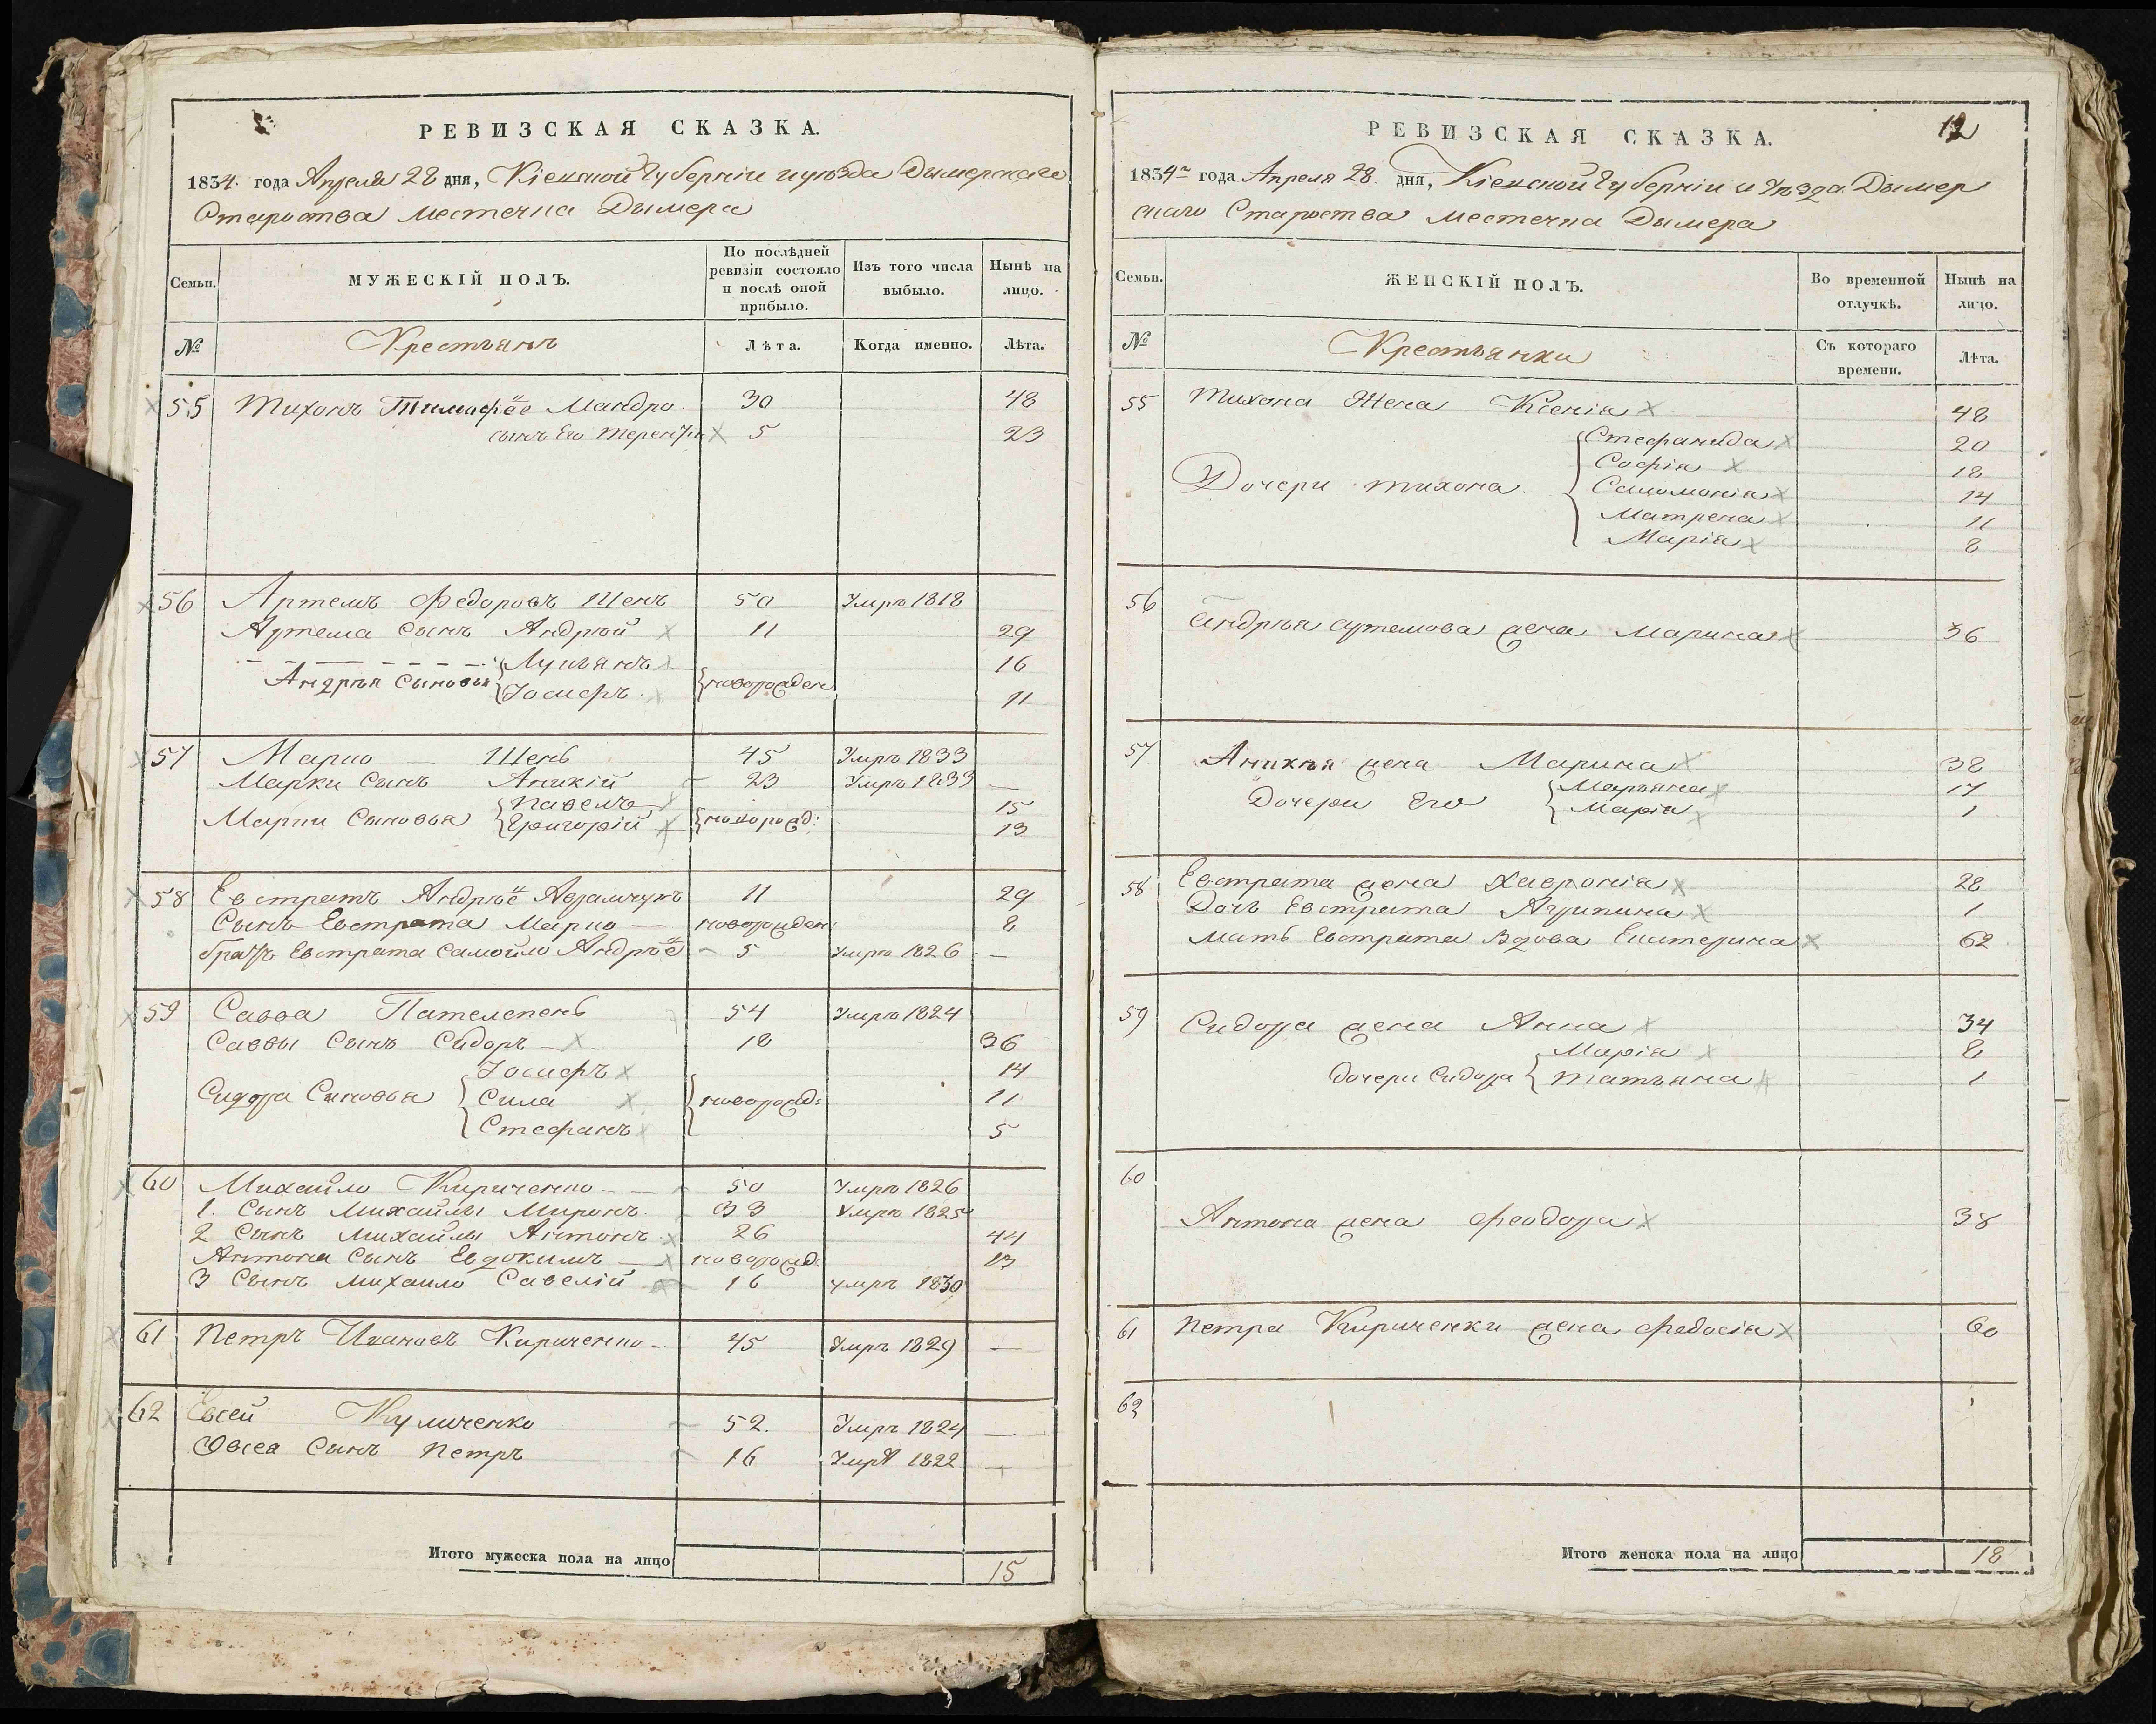 РЕВИЗСКАЯ СКАЗКА.
1834. года Апреля 28 дня, Кіевской Губерніи и уѣзда Дымерскаго
Староства местечка Дымера
Семьи.
МУЖЕСКІЙ ПОЛЪ.
По послѣдней ревизіи состояло и послѣ оной прибыло.
Изъ того числа выбыло.
Нынѣ на лицо.
№
Крестьянъ
Лѣта.
Когда именно.
Лѣта.
55 Тихонъ Тимофѣе Мандро 30 48
сынъ Его Терентій 5 23
56 Артемъ Федоровъ Шенъ 50 Умръ 1818
Артема Сынъ Андрѣй 11 29
Лукьянъ 16
Андрѣя Сыновья новорожден
Іосифъ 11
57 Марко Шень 45 Умръ 1833
Марки Сынъ Аникій 23 Умръ 1833 —
Павелъ 15
Марки Сыновья новорожд:
Григорій 13
58 Евстратъ Андрѣё Аврамчукъ 11 29
Сынъ Евстрата Марко — новорожден: 8
братъ Евстрата Самойло Андрѣё 5 Умръ 1826 —
59 Савва Пателепень 54 Умръ 1824
Саввы Сынъ Сидоръ 18 36
Іосифъ 14
Сидора Сыновья Сила новорожд: 11
Стефанъ 5
60 Михайло Кириченко 50 Умръ 1826
1. Сынъ Михайлы Миронъ. 33 Умръ 1825
2 Сынъ Михайлы Антонъ 26 44
Антона Сынъ Евдокимъ новорожд. 13
3 Сынъ Михаило Савелій 16 умръ 1830
61 Петръ Ивановъ Кириченко 45 Умръ 1829 —
62 Евсей Куличенко 52. Умръ 1824 —
Овсея Сынъ Петръ 16 Умръ 1822 —
Итого мужеска пола на лицо 15
12
РЕВИЗСКАЯ СКАЗКА.
1834го года Апреля 28. дня, Кіевской Губерніи и Уѣзда Дымер
скаго Староства местечка Дымера
Семьи.
ЖЕНСКІЙ ПОЛЪ.
Во временной отлучкѣ.
Нынѣ на лицо.
№
Крестьянки
Съ котораго времени.
Лѣта.
55 Тихона Жена Ксенія 48
Стефанида 20
Софія 18
Дочери Тихона. Саломонія 14
Матрена 11
Марія 8
56 Андрѣя Артемова жена Марина 36
57 Аникѣя жена Марина 38
Дочери Его Марьяна 17
Марія 1
58 Евстрата жена Хавронія 28
Дочь Евстрата Агрипина 1
Мать Евстрата Вдова Екатерина 62
59 Сидора жена Анна 34
Марія 8
дочери Сидора Татьяна 1
60
Антона жена Феодора 38
61 Петра Кириченки жена Федосія 60
62
Итого женска пола на лицо 18